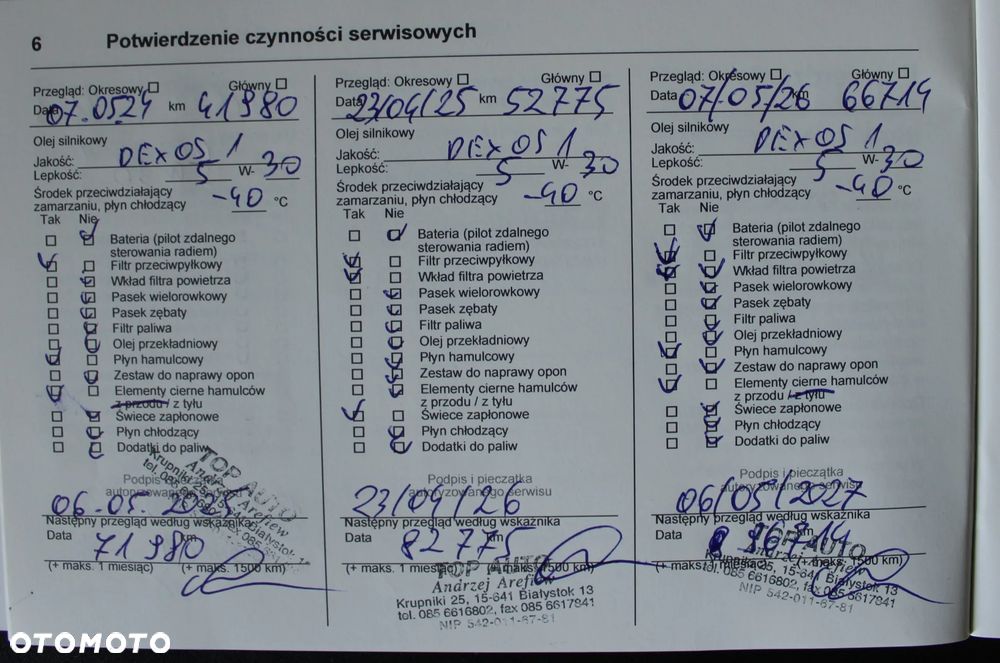 6 Potwierdzenie czynności serwisowych
Przegląd: Okresowy Główny
Data 07.0524 km 41980
Olej silnikowy
Jakość: DEXOS 1
Lepkość: 5 W- 30
Środek przeciwdziałający
zamarzaniu, płyn chłodzący -40 °C
Tak Nie
Bateria (pilot zdalnego
sterowania radiem)
Filtr przeciwpyłkowy
Wkład filtra powietrza
Pasek wielorowkowy
Pasek zębaty
Filtr paliwa
Olej przekładniowy
Płyn hamulcowy
Zestaw do naprawy opon
Elementy cierne hamulców
z przodu / z tyłu
Świece zapłonowe
Płyn chłodzący
Dodatki do paliw
Podpis i pieczątka
autoryzowanego serwisu
06.05.
Następny przegląd według wskaźnika
Data 71980 km
(+ maks. 1 miesiąc) (+ maks. 1500 km)
TOP AUTO
Andrzej Arefiew
Krupniki 25, 15-641 Białystok 13
tel. 085 6616802, fax 085
Przegląd: Okresowy Główny
Data 23/04/25 km 52775
Olej silnikowy
Jakość: DEXOS 1
Lepkość: 5 W- 30
Środek przeciwdziałający
zamarzaniu, płyn chłodzący -40 °C
Tak Nie
Bateria (pilot zdalnego
sterowania radiem)
Filtr przeciwpyłkowy
Wkład filtra powietrza
Pasek wielorowkowy
Pasek zębaty
Filtr paliwa
Olej przekładniowy
Płyn hamulcowy
Zestaw do naprawy opon
Elementy cierne hamulców
z przodu / z tyłu
Świece zapłonowe
Płyn chłodzący
Dodatki do paliw
Podpis i pieczątka
autoryzowanego serwisu
23/04/26
Następny przegląd według wskaźnika
Data 82775 km
(+ maks. 1 miesiąc) (+ maks. 1500 km)
TOP AUTO
Andrzej Arefiew
Krupniki 25, 15-641 Białystok 13
tel. 085 6616802, fax 085 6617941
NIP 542-011-67-81
Przegląd: Okresowy Główny
Data 07/05/26 km 66714
Olej silnikowy
Jakość: DEXOS 1
Lepkość: 5 W- 30
Środek przeciwdziałający
zamarzaniu, płyn chłodzący -40 °C
Tak Nie
Bateria (pilot zdalnego
sterowania radiem)
Filtr przeciwpyłkowy
Wkład filtra powietrza
Pasek wielorowkowy
Pasek zębaty
Filtr paliwa
Olej przekładniowy
Płyn hamulcowy
Zestaw do naprawy opon
Elementy cierne hamulców
z przodu / z tyłu
Świece zapłonowe
Płyn chłodzący
Dodatki do paliw
Podpis i pieczątka
autoryzowanego serwisu
06/05/2027
Następny przegląd według wskaźnika
Data 96714 km
(+ maks. 1 miesiąc) (+ maks. 1500 km)
TOP AUTO
Andrzej Arefiew
Krupniki 25, 15-641 Białystok 13
tel. 085 6616802, fax 085 6617941
NIP 542-011-67-81
OTOMOTO